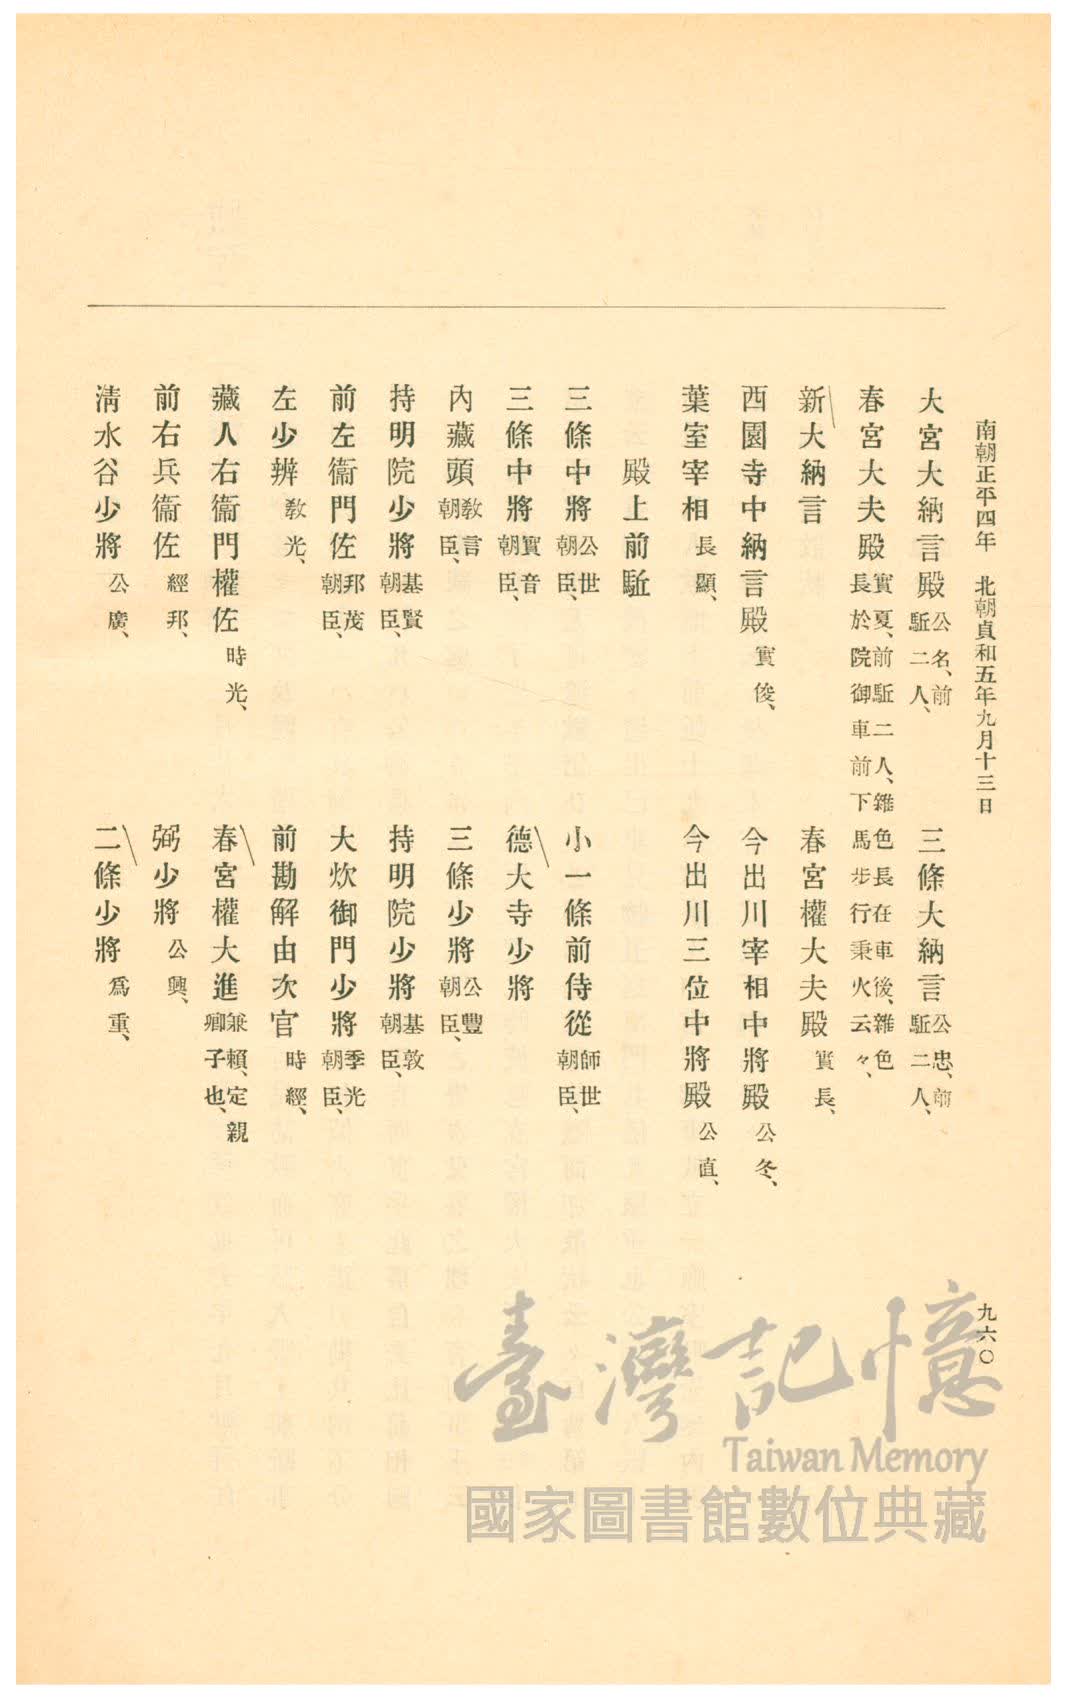 南朝正平四年　北朝貞和五年九月十三日
九六〇
大宮大納言殿 公名、前駈二人、　三條大納言 公忠、前駈二人、
春宮大夫殿 實夏、前駈二人、雜色長在車後、雜色長於院御車前下馬步行秉火云々、
新大納言　春宮權大夫殿 實長、
西園寺中納言殿 實俊、　今出川宰相中將殿 公冬、
葉室宰相 長顯、　今出川三位中將殿 公直、
殿上前駈
三條中將 公世朝臣、　小一條前侍從 師世朝臣、
三條中將 實音朝臣、　德大寺少將
內藏頭 敎言朝臣、　三條少將 公豐朝臣、
持明院少將 基賢朝臣、　持明院少將 基敦朝臣、
前左衞門佐 邦茂朝臣、　大炊御門少將 季光朝臣、
左少辨 敎光、　前勘解由次官 時經、
藏人右衞門權佐 時光、　春宮權大進 兼賴、定親卿子也、
前右兵衞佐 經邦、　弼少將 公興、
淸水谷少將 公廣、　二條少將 爲重、
臺灣記憶
Taiwan Memory
國家圖書館數位典藏